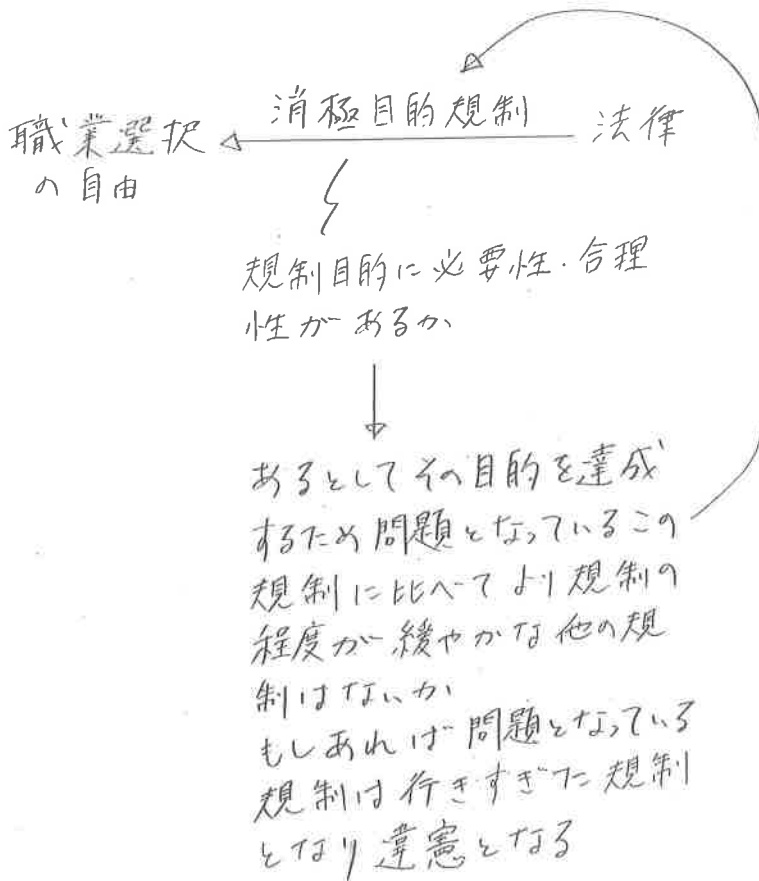 消極目的規制
職業選択
法律
の自由
規制目的に必要性・合理
性があるか
あるとしてその目的を達成
するため問題となっているこの
規制に比べてより規制の
程度が緩やかな他の規
制はないか
もしあれば問題となっている
規制は行きすぎた規制
となり違憲となる